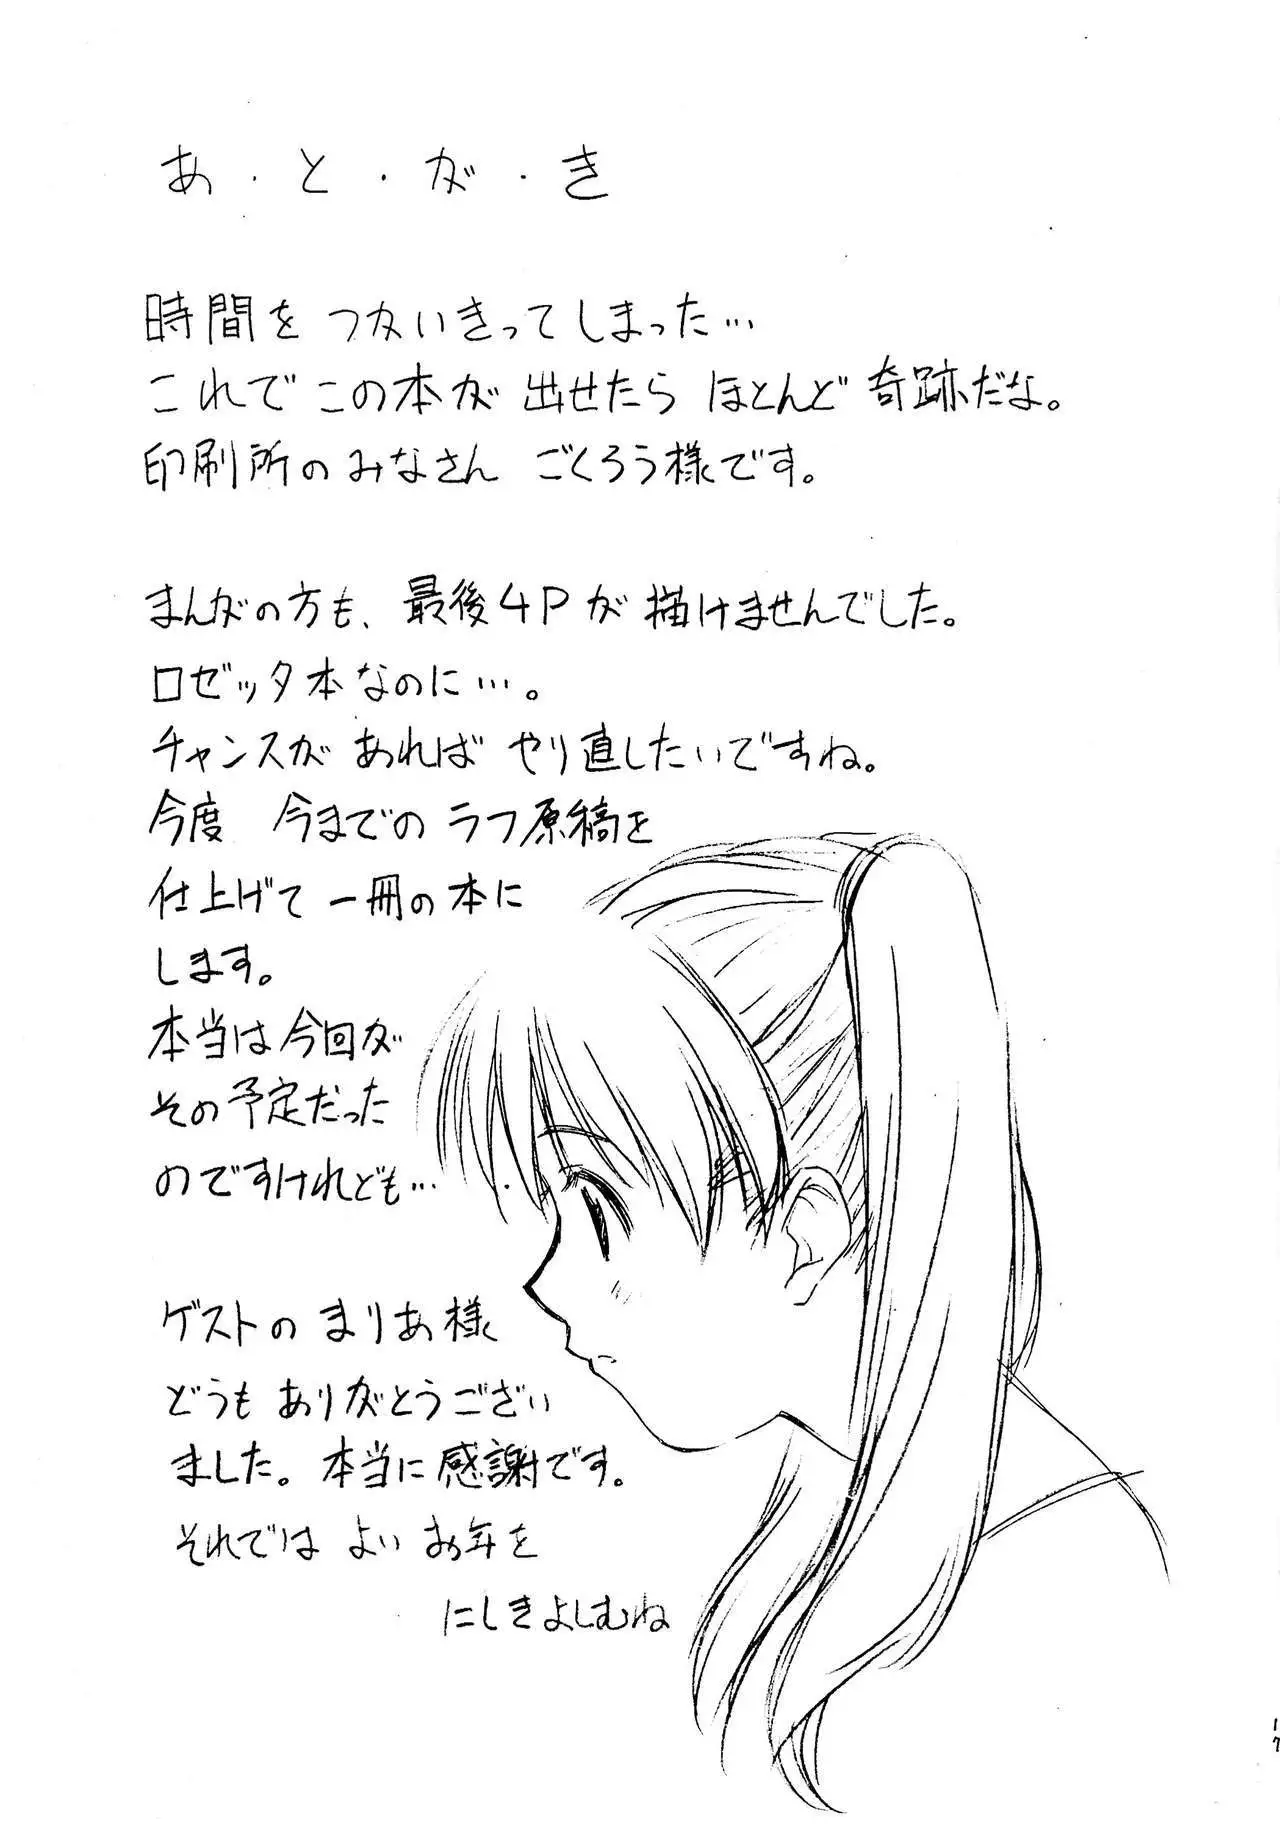 あ・と・が・き
時間をつかいきってしまった…
これでこの本が出せたら ほとんど奇跡だな。
印刷所のみなさん ごくろう様です。
まんがの方も、最後4Pが描けませんでした。
ロゼッタ本なのに…。
チャンスがあれば やり直したいですね。
今度 今までのラフ原稿を
仕上げて一冊の本に
します。
本当は今回が
その予定だった
のですけれども…
ゲストの まりあ様
どうもありがとうござい
ました。本当に感謝です。
それでは よいお年を
にしきよしむね
17